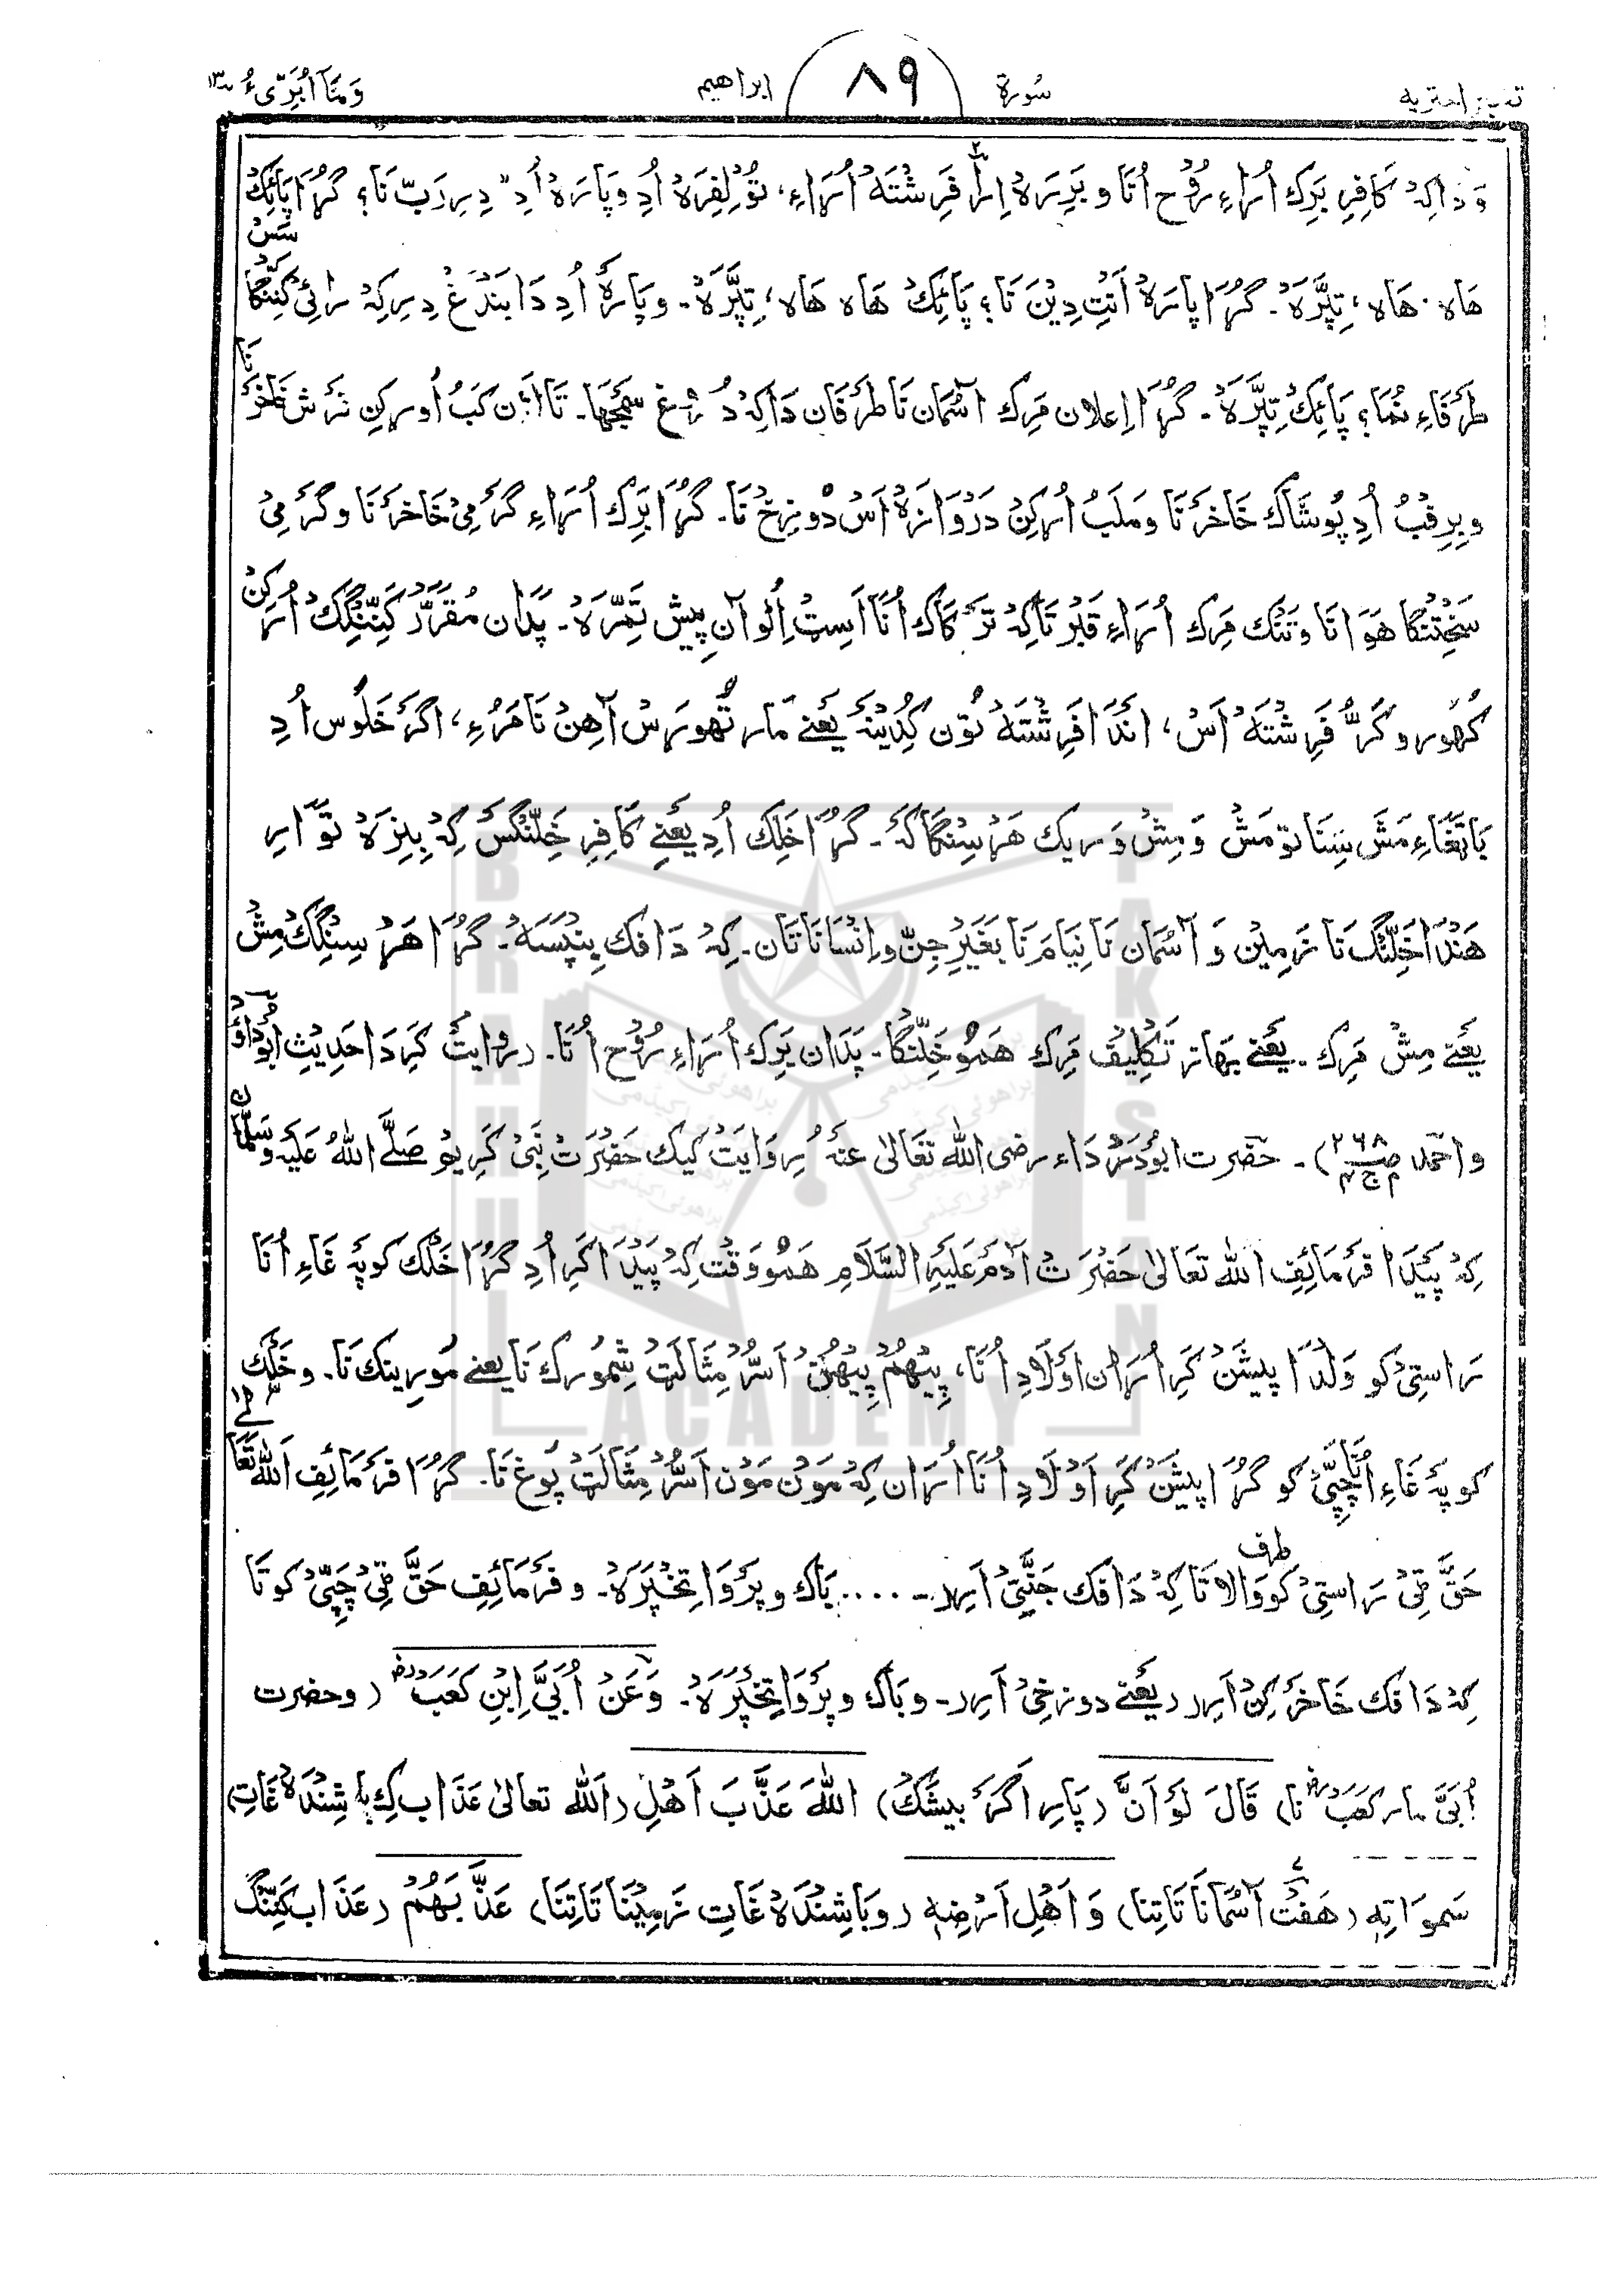 تفسیر اختریه سُورة ٨٩ ابراهیم وَمَآ اُبَرِّیءُ ١٣
وَدَاکِہ کَافِرِ بَرِک اُرَاءِ رُوْح اُنَا و بَرِیرَہْ اِرَاْ فَرِشْتَہْ اُرَاءِ، تُوْلِفِرَہ اُدِ و پَارَہْ اُدِ" دِرِ رَبّ نَا؟ گُرَا پَائِکْ
هَاه، هَاه، تِپَّرَہْ۔ گُرَا پَارَہْ اَنْتِ دِیْنَ نَا؟ پَائِکْ هَاه هَاه، تِپَّرَہْ۔ و پَارَہ اُدِ دَا بَنْدَغْ دِرِ کِہْ رَائِیْ کَنِنْگَاسُسْ
طَرَفَاءِ نُمَا؟ پَائِکْ تِپَّرَہْ۔ گُرَا اِعلان مَرِک آسْمَان نَا طَرَفَان دَاکِہْ دُرُغ سَمجَها۔ تَا اُن کَبْ اُورکِن فَرَش خَاخَرْنَا
و بِرِفْبُ اُدِ پُوشَاک خَاخَرْنَا و مَلَبُ اُرکِنْ دَرْوَازَہْ اَسْ دُوزِخْ نَا۔ گُرَا بَرِک اُرَاءِ گَرمِیْ خَاخَرْنَا و گَرمِیْ
سَخْتُنگَا هَوَانَا و تَنْک مَرِک اُرَاءِ قَبْر تَاکِہْ تَرَکَّاک اُنَا اَسِتْ اِلُو آن پِیش تَمِّرَہْ۔ پَدَان مُقَرَّرْ کَنِّنْگِکْ اُرَکِنْ
کَہْور و کَرّ فَرِشْتَہْ اَسْ، اَنْدَا فَرِشْتَہْ تُون کُدِینَہ یَعْنے مَار تُهورَسْ آهِنْ نَا مَرءِ، اگَرْ خَلُوس اُدِ
بَا تَغَاءِ مَش سِنَا تو مَشْ وَمِشْ وَرِیک هَرْسِنْگَاکَہْ۔ گُرَا خَلِک اُدِ یَعْنے کَافِرِ خَلِّنگسْ کِہْ بِنِرَہْ تَوَارِ
هَنْدَا خَلِّنْگ نَا زَمِیْن وَ آسْمَان نَا نِیَام نَا بَغَیْرِ جِنّ و اِنْسَانَا تَان۔ کِہْ دَافْک بِنْپَسَہْ۔ گُرَا هَرْسِنْگِکْ مِشْ
یَعْنے مِشْ مَرِک۔ یَعْنے بَهَاز تَکْلِیف مَرِک هَمُو خَلِّنْگَا۔ پَدَان بَرِک اُرَاءِ رُوْح اُنَا۔ (رِوَایَتْ کَرِ دَا حَدِیْثِ ابُودَاؤد
و احمَد ص ٢٦٨ ج ٣)۔ حَضْرت ابُودَرْدَاء رضی اللہ تَعَالیٰ عنہُ رِوَایَتْ کِیک حَضْرَتْ نَبِیْ کَرِیم صَلَّے اللہُ عَلَیہِ وَسَلَّم آن
کِہْ پَیدَا فَرمَائِف اللہ تَعَالیٰ حَضْرَتْ آدَم عَلَیہِ السَّلَام هَمُو وَقْت کِہْ پَیْدَا کَرِ اُدِ گُرَا خَلْک کوپَہْ غَاءِ اُنَا
رَاسْتِیْ کو وَلْدَا پیشَنْ کَرِ اُرَان اَوْلَادِ اُنَا، پِیْهُنْ پِیْهُنْ اَسُّرْ مِثَالَتْ شِمُورَک نَا یعنے مَورِینک نَا۔ و خَلْک
کوپَہْ غَاءِ اُنَا چَپِّیْ کو گُرَا پیشَنْ کَرِ اَوْلَادِ اُنَا اُرَان کِہْ مَوْن مَوْن اَسُّرْ مِثَالَتْ پَوْغ نَا۔ گُرَا فَرمَائِف اَللہ تَعَالیٰ
حَقّ ٹِیْ رَاسْتِیْ کو طرف وَالَا تَا کِہْ دَافْک جَنَّتِیْ اَرِر۔ .... بَاک و پَرْوَا تِخْپَرَہْ۔ و فَرمَائِف حَقّ ٹِیْ چَپِّیْ کو تَا
کِہْ دَافک خَاخَرْ کِنْ اَرِر (یَعْنے دوزخِیْ اَرِر۔ و بَاک و پَرْوَا تِخْپَرَہْ۔ وَعَنْ اُبَیِّ ابْنِ کَعَبْ (و حضرت
اُبَیّ مار کَعَبْ نا) قَالَ لَوْ اَنَّ (پَارِ اَگَرْ بیشَکْ) اللہَ عَذَّبَ اَهْلَ (اَللہ تعالیٰ عَذَاب کِ بَاشِنْدَہْ غَاتِ)
سَمٰوَاتِہٖ (هَفْتْ آسْمَانَا تَا تِنَا) وَ اَهْلَ اَرْضِہٖ (و بَاشِنْدَہْ غَاتِ زَمِیْنَا تَا تِنَا) عَذَّبَهُمْ (عَذَاب کَنِنْگ
BRAHUI ACADEMY PAKISTAN